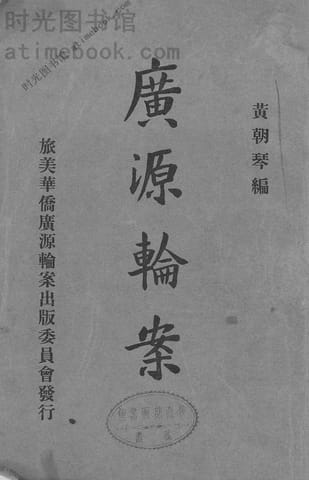 时光图书馆
atimebook.com
时光图书馆 atimebook.com
黃朝琴編
廣源輪案
旅美華僑廣源輪案出版委員會發行